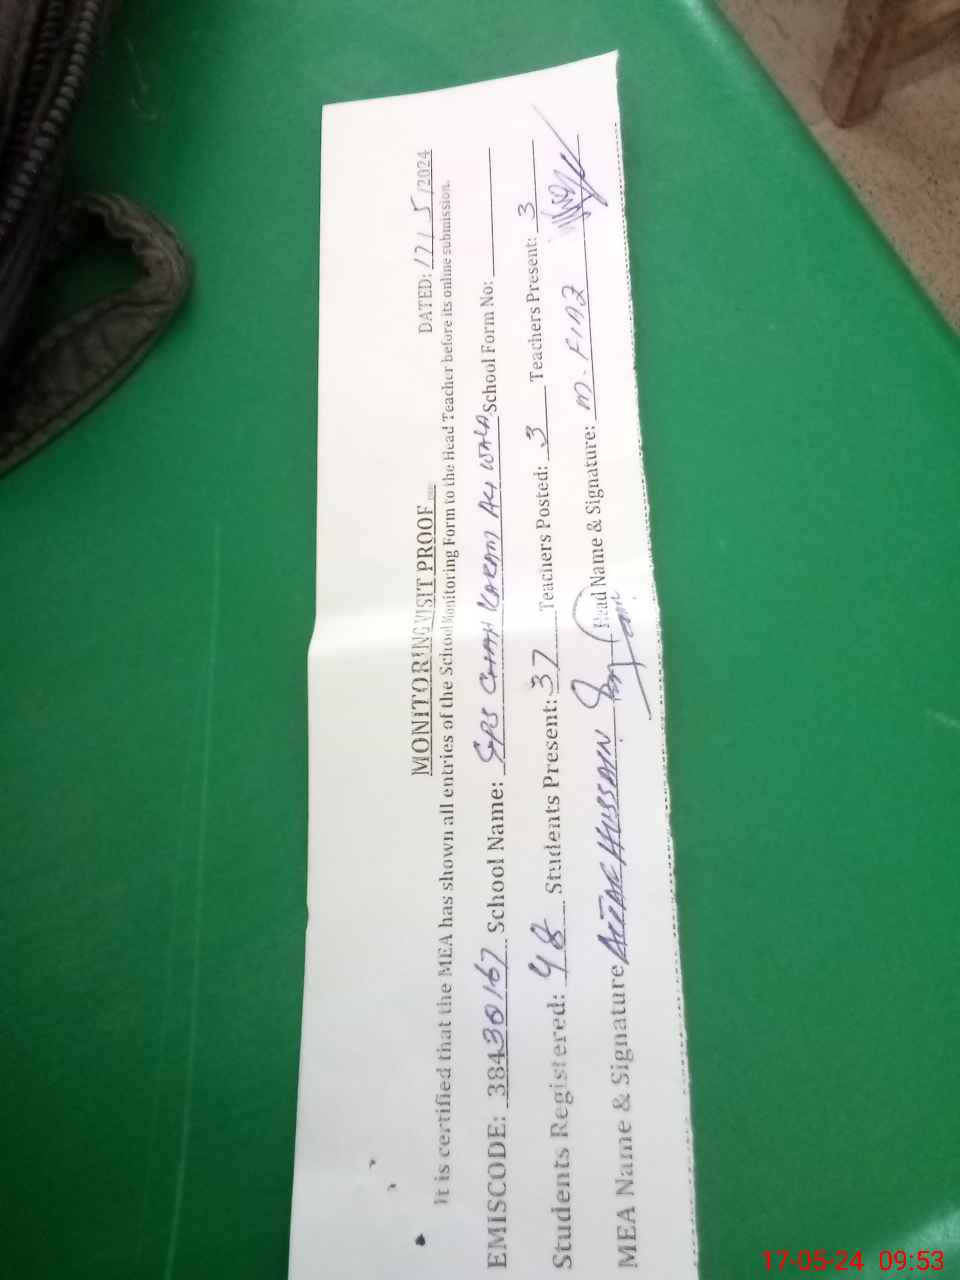 MONITORING VISIT PROOF
DATED: 17/5/2024
It is certified that the MEA has shown all entries of the School Monitoring Form to the Head Teacher before its online submission.
EMISCODE: 38430167 School Name: GPS CHAH KARAM ALI WALA School Form No:
Students Registered: 48 Students Present: 37 Teachers Posted: 3 Teachers Present: 3
MEA Name & Signature HUSSAIN Head Name & Signature: M. FIAZ
17-05-24 09:53